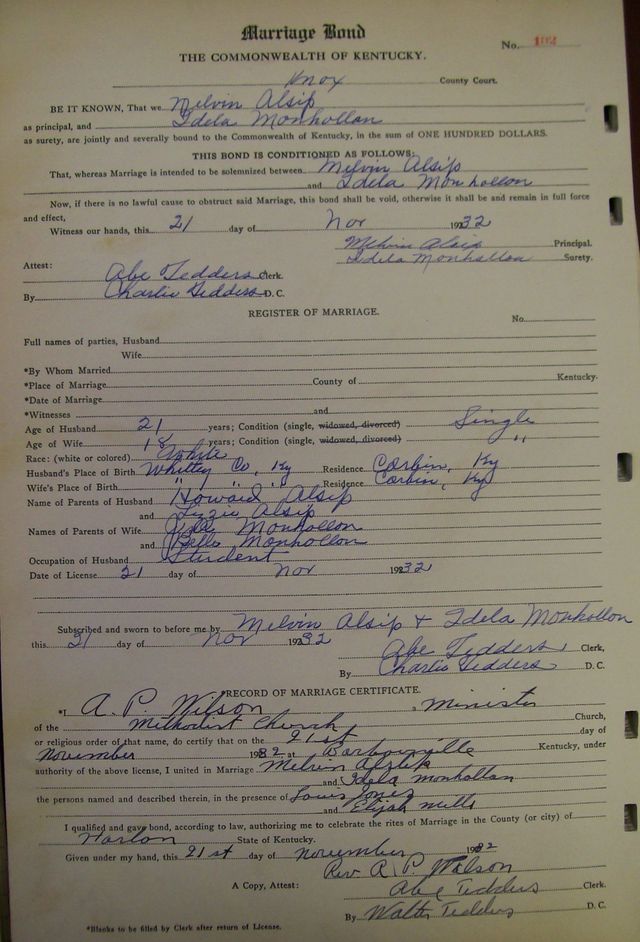 Marriage Bond
No. 192
THE COMMONWEALTH OF KENTUCKY.
Knox County Court.
BE IT KNOWN, That we Melvin Alsip
as principal, and Idela Monhollan
as surety, are jointly and severally bound to the Commonwealth of Kentucky, in the sum of ONE HUNDRED DOLLARS.
THIS BOND IS CONDITIONED AS FOLLOWS:
That, whereas Marriage is intended to be solemnized between Melvin Alsip
and Idela Monhollon
Now, if there is no lawful cause to obstruct said Marriage, this bond shall be void, otherwise it shall be and remain in full force
and effect,
Witness our hands, this 21 day of Nov 1932
Melvin Alsip Principal.
Idela Monhollon Surety.
Attest:
Abe Tedders Clerk.
By Charlie Tedders D. C.
REGISTER OF MARRIAGE.
No.
Full names of parties, Husband
Wife
*By Whom Married
*Place of Marriage County of Kentucky.
*Date of Marriage
*Witnesses and
Age of Husband 21 years; Condition (single, widowed, divorced) Single
Age of Wife 18 years; Condition (single, widowed, divorced) "
Race: (white or colored) White
Husband's Place of Birth Whitley Co, Ky Residence Corbin, Ky
Wife's Place of Birth " " " Residence Corbin, Ky
Name of Parents of Husband Howard Alsip
and Lizzie Alsip
Names of Parents of Wife Monhollon
and Belle Monhollon
Occupation of Husband Student
Date of License 21 day of Nov 1932
Subscribed and sworn to before me by Melvin Alsip + Idela Monhollon
this 21 day of Nov 1932
Abe Tedders Clerk,
By Charlie Tedders D. C.
RECORD OF MARRIAGE CERTIFICATE.
*I A. P. Wilson, a Minister
of the Methodist Church Church,
or religious order of that name, do certify that on the 21st day of
November 1932 at Barbourville Kentucky, under
authority of the above license, I united in Marriage Melvin Alsip
and Idela Monhollan
the persons named and described therein, in the presence of Louis Jones
and Elijah Mills
I qualified and gave bond, according to law, authorizing me to celebrate the rites of Marriage in the County (or city) of
Harlan State of Kentucky.
Given under my hand, this 21st day of November 1932
Rev A. P. Wilson
A Copy, Attest: Abe Tedders Clerk.
By Walter Tedders D. C.
*Blanks to be filled by Clerk after return of License.